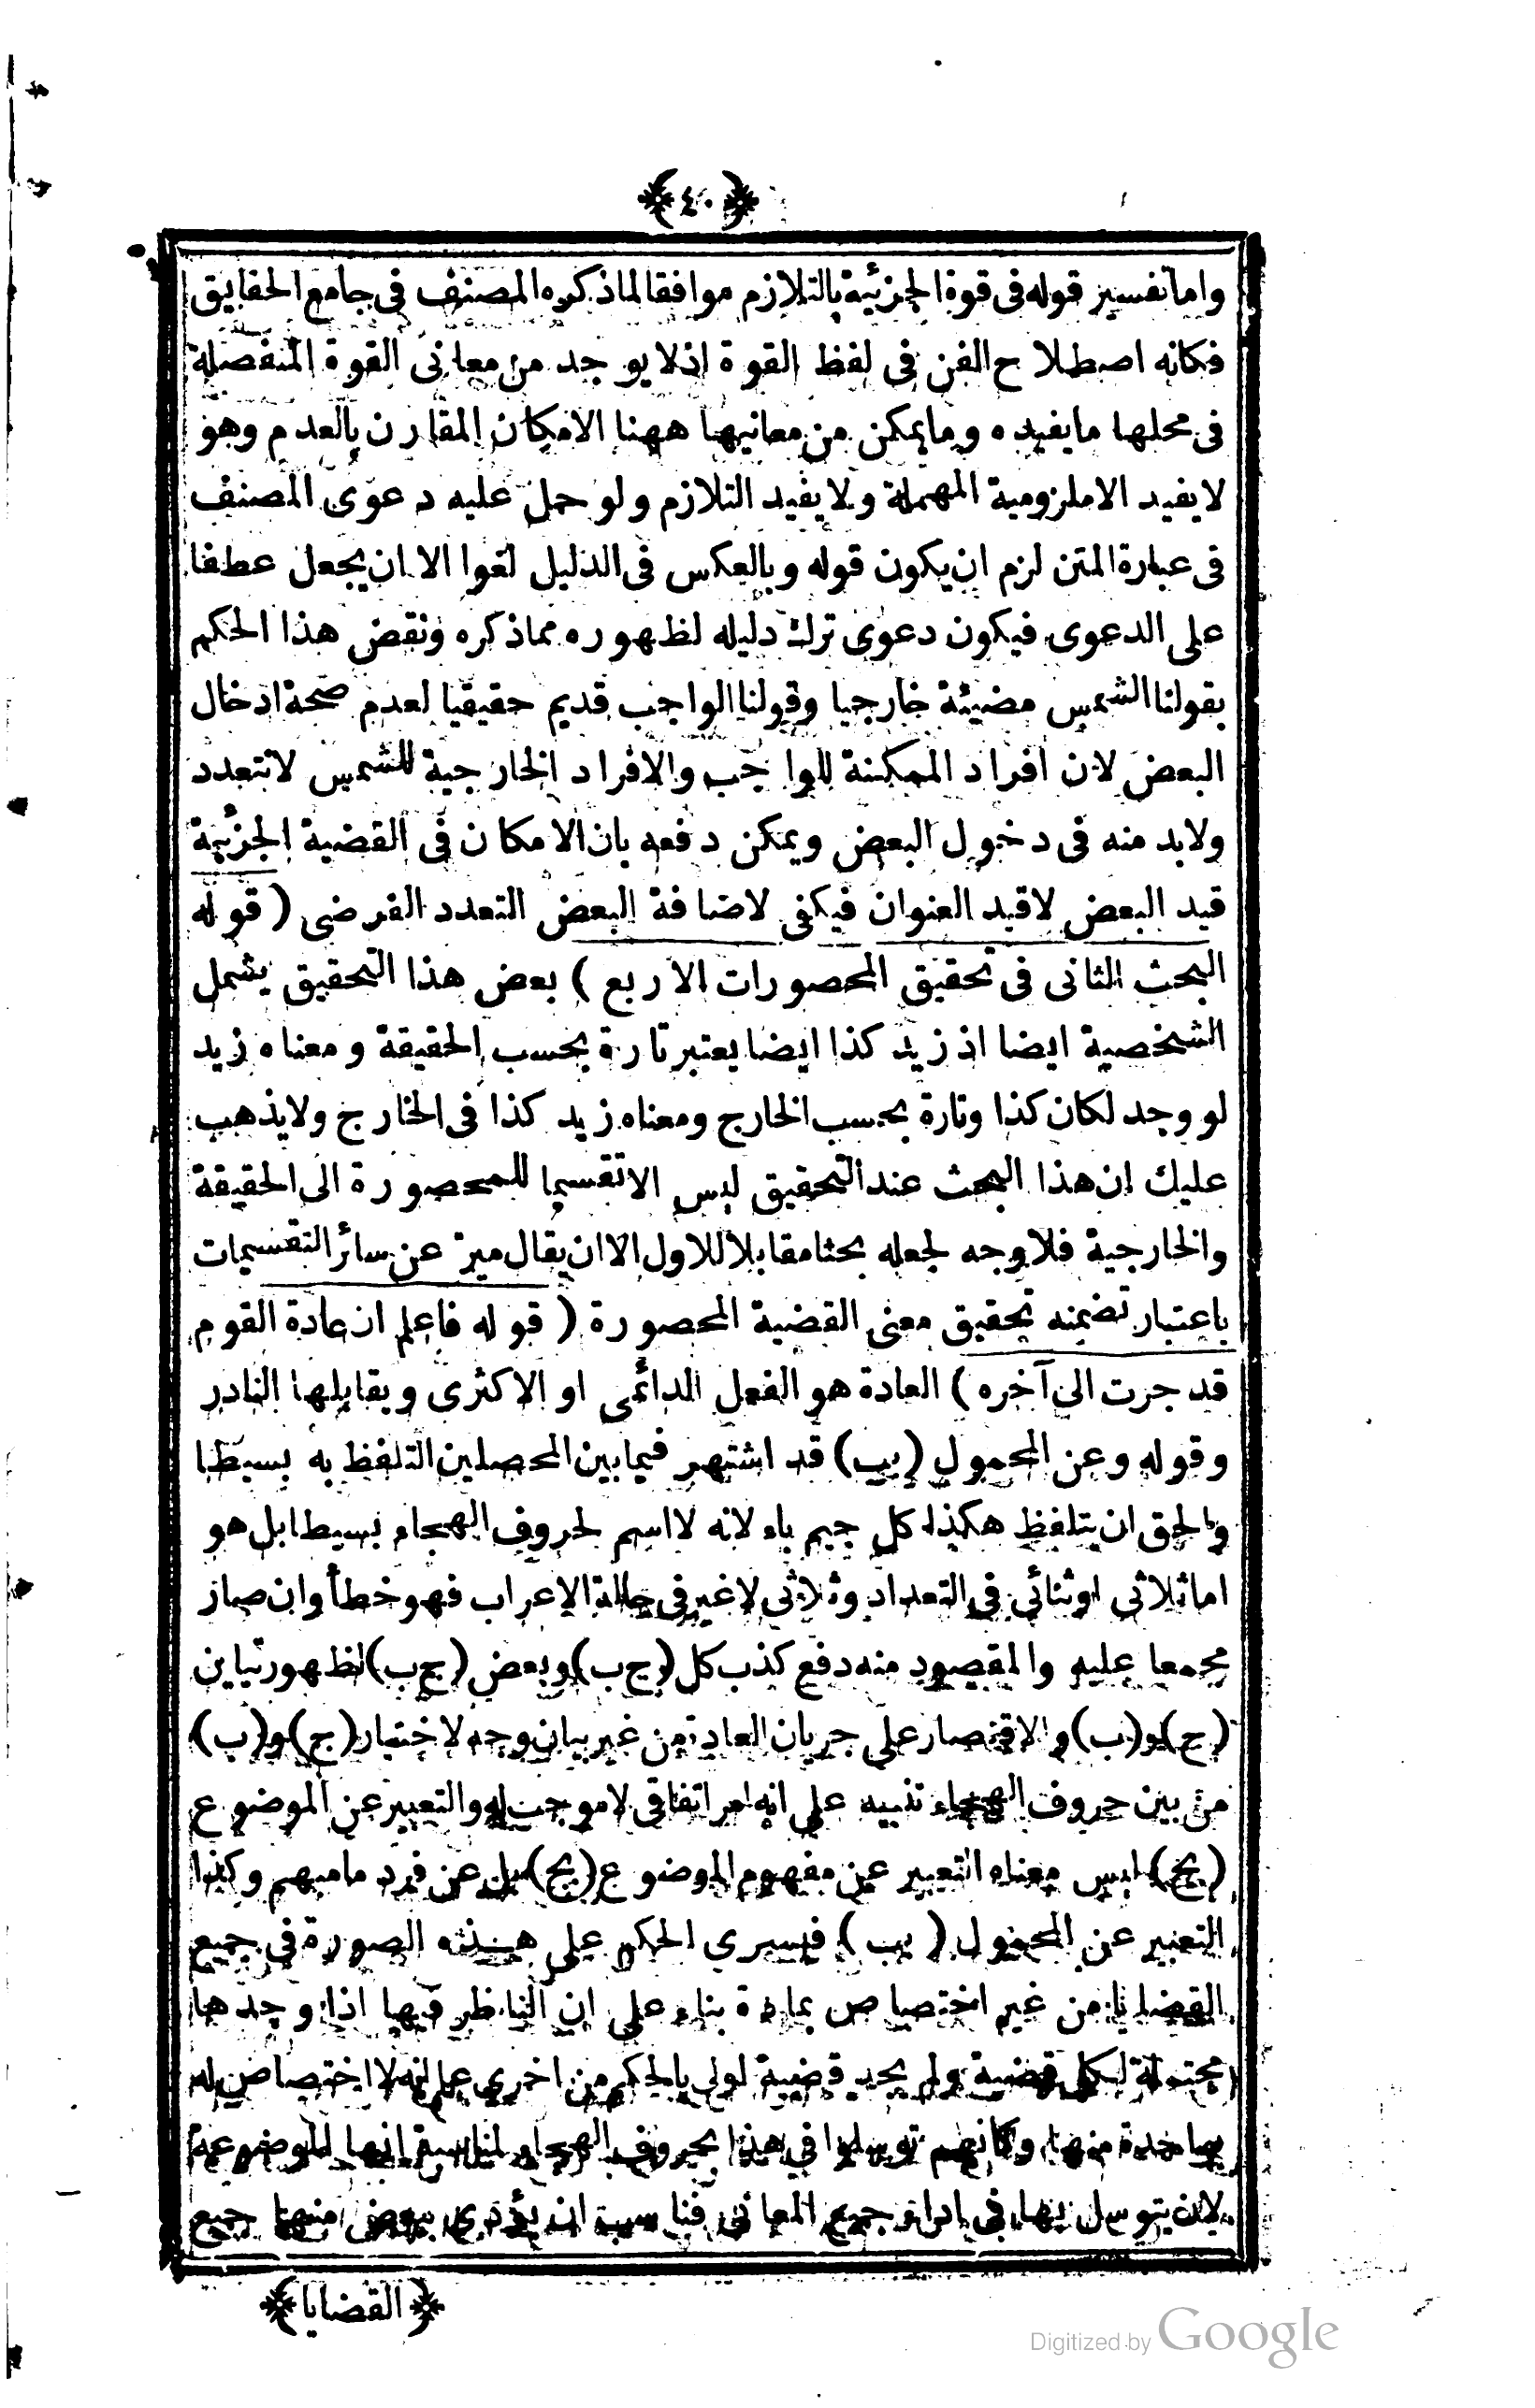 ﴿٤٠﴾
واما تفسير قوله فى قوة الجزئية بالتلازم موافقا لما ذكره المصنف فى جامع الحقايق
فكانه اصطلاح الفن فى لفظ القوة اذ لا يوجد من معانى القوة المنفصلة
فى محلها ما يفيده وما يمكن من معانيها ههنا الامكان المقارن بالعدم وهو
لا يفيد الا ملزومية المهملة ولا يفيد التلازم ولو حمل عليه دعوى المصنف
فى عبارة المتن لزم ان يكون قوله وبالعكس فى الدليل لغوا الا ان يجعل عطفا
على الدعوى فيكون دعوى ترك دليله لظهوره مما ذكره ونقض هذا الحكم
بقولنا الشمس مضيئة خارجيا وقولنا الواجب قديم حقيقيا لعدم صحة ادخال
البعض لان افراد الممكنة للواجب والافراد الخارجية للشمس لا تتعدد
ولابد منه فى دخول البعض ويمكن دفعه بان الامكان فى القضية الجزئية
قيد البعض لا قيد العنوان فيكفى لاضافة البعض التعدد الفرضى ( قوله
البحث الثانى فى تحقيق المحصورات الاربع ) بعض هذا التحقيق يشمل
الشخصية ايضا اذ زيد كذا ايضا يعتبر تارة بحسب الحقيقة ومعناه زيد
لو وجد لكان كذا وتارة بحسب الخارج ومعناه زيد كذا فى الخارج ولا يذهب
عليك ان هذا البحث عند التحقيق ليس الا تقسيما للمحصورة الى الحقيقة
والخارجية فلا وجه لجعله بحثا مقابلا للاول الا ان يقال ميز عن سائر التقسيمات
باعتبار تضمنه تحقيق معنى القضية المحصورة ( قوله فاعلم ان عادة القوم
قد جرت الى آخره ) العادة هو الفعل الدائمى او الاكثرى ويقابلها النادر
وقوله وعن المحمول (بب) قد اشتهر فيما بين المحصلين التلفظ به بسيطا
والحق ان يتلفظ هكذا كل جيم باء لانه لا اسم لحروف الهجاء بسيطا بل هو
اما ثلاثى او ثنائى فى التعداد وثلاثى لا غير فى حالة الاعراب فهو خطأ وان صار
مجمعا عليه والمقصود منه دفع كذب كل (ج ب) وبعض (ج ب) لظهور تباين
(ج) و(ب) والاقتصار على جريان العادة من غير بيان وجه لاختيار (ج) و(ب)
من بين حروف الهجاء تنبيه على انه امر اتفاقى لا موجب له والتعبير عن الموضوع
(بج) ليس معناه التعبير عن مفهوم الموضوع (بج) بل عن فرد ما مبهم وكذا
التعبير عن المحمول (بب) فيسرى الحكم على هذه الصورة فى جميع
القضايا من غير اختصاص بمادة بناء على ان الناظر فيها اذا وجدها
محتملة لكل قضية ولم يجد قضية اولى بالحكم من اخرى علم انه لا اختصاص له
بواحدة منها وكانهم توسلوا فى هذا بحروف الهجاء لمناسبة انها الموضوعة
لان يتوسل بها فى اداء جميع المعانى فناسب ان يؤدى ببعض منها جميع
﴿القضايا﴾
Digitized by Google